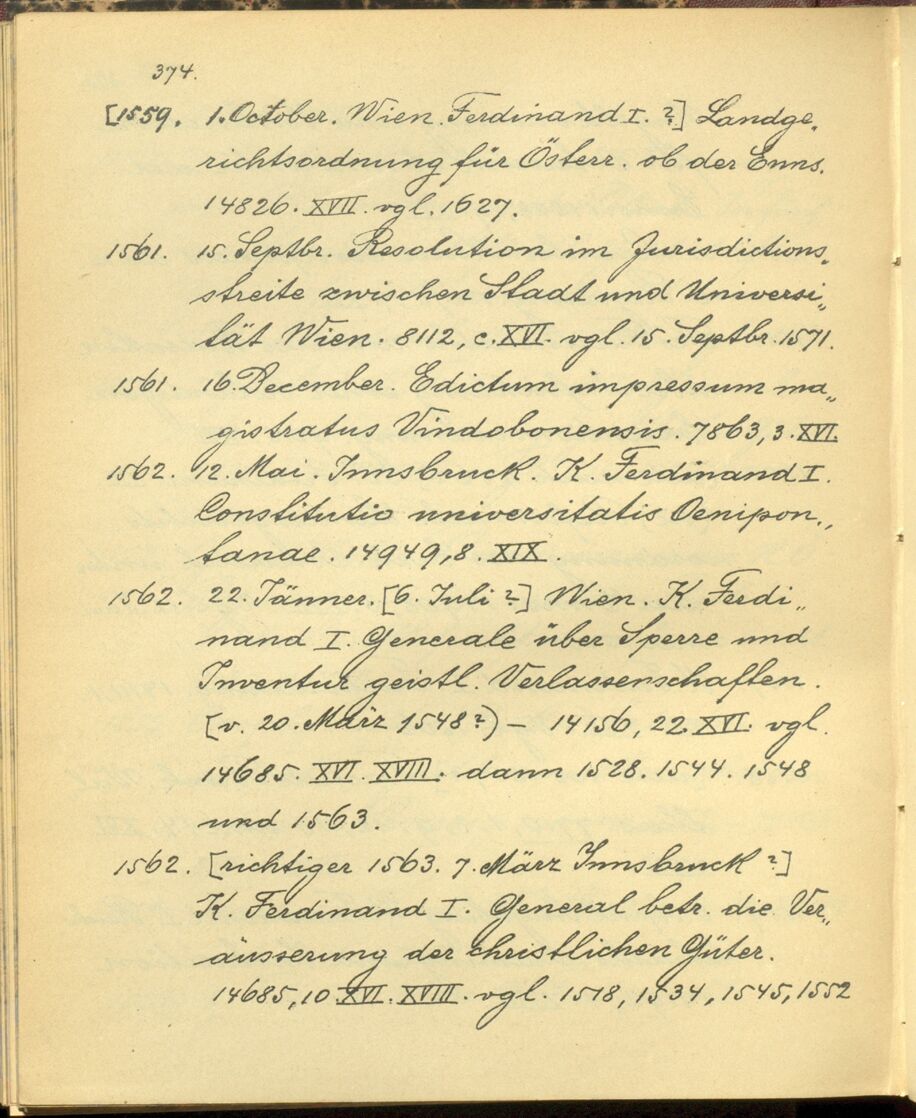 374.
[1559. 1. October. Wien. Ferdinand I. ?] Landge„
richtsordnung für Österr. ob der Enns.
14826. XVII. vgl. 1627.
1561. 15. Septbr. Resolution im Jurisdictions„
streite zwischen Stadt und Universi„
tät Wien. 8112, c. XVI. vgl. 15. Septbr. 1571.
1561. 16. December. Edictum impressum ma„
gistratus Vindobonensis. 7863, 3. XVI.
1562. 12. Mai. Innsbruck. K. Ferdinand I.
Constitutio universitatis Oenipon„
tanae. 14949, 8. XIX
1562. 22. Jänner. [6. Juli ?] Wien. K. Ferdi„
nand I. Generale über Sperre und
Inventur geistl. Verlassenschaften.
[v. 20. März 1548 ?) – 14156, 22. XVI. vgl.
14685. XVI. XVIII. dann 1528. 1544. 1548
und 1563.
1562. [richtiger 1563. 7. März Innsbruck ?]
K. Ferdinand I. General betr. die Ver„
äusserung der christlichen Güter.
14685, 10 XVI. XVIII. vgl. 1518, 1534, 1545, 1552